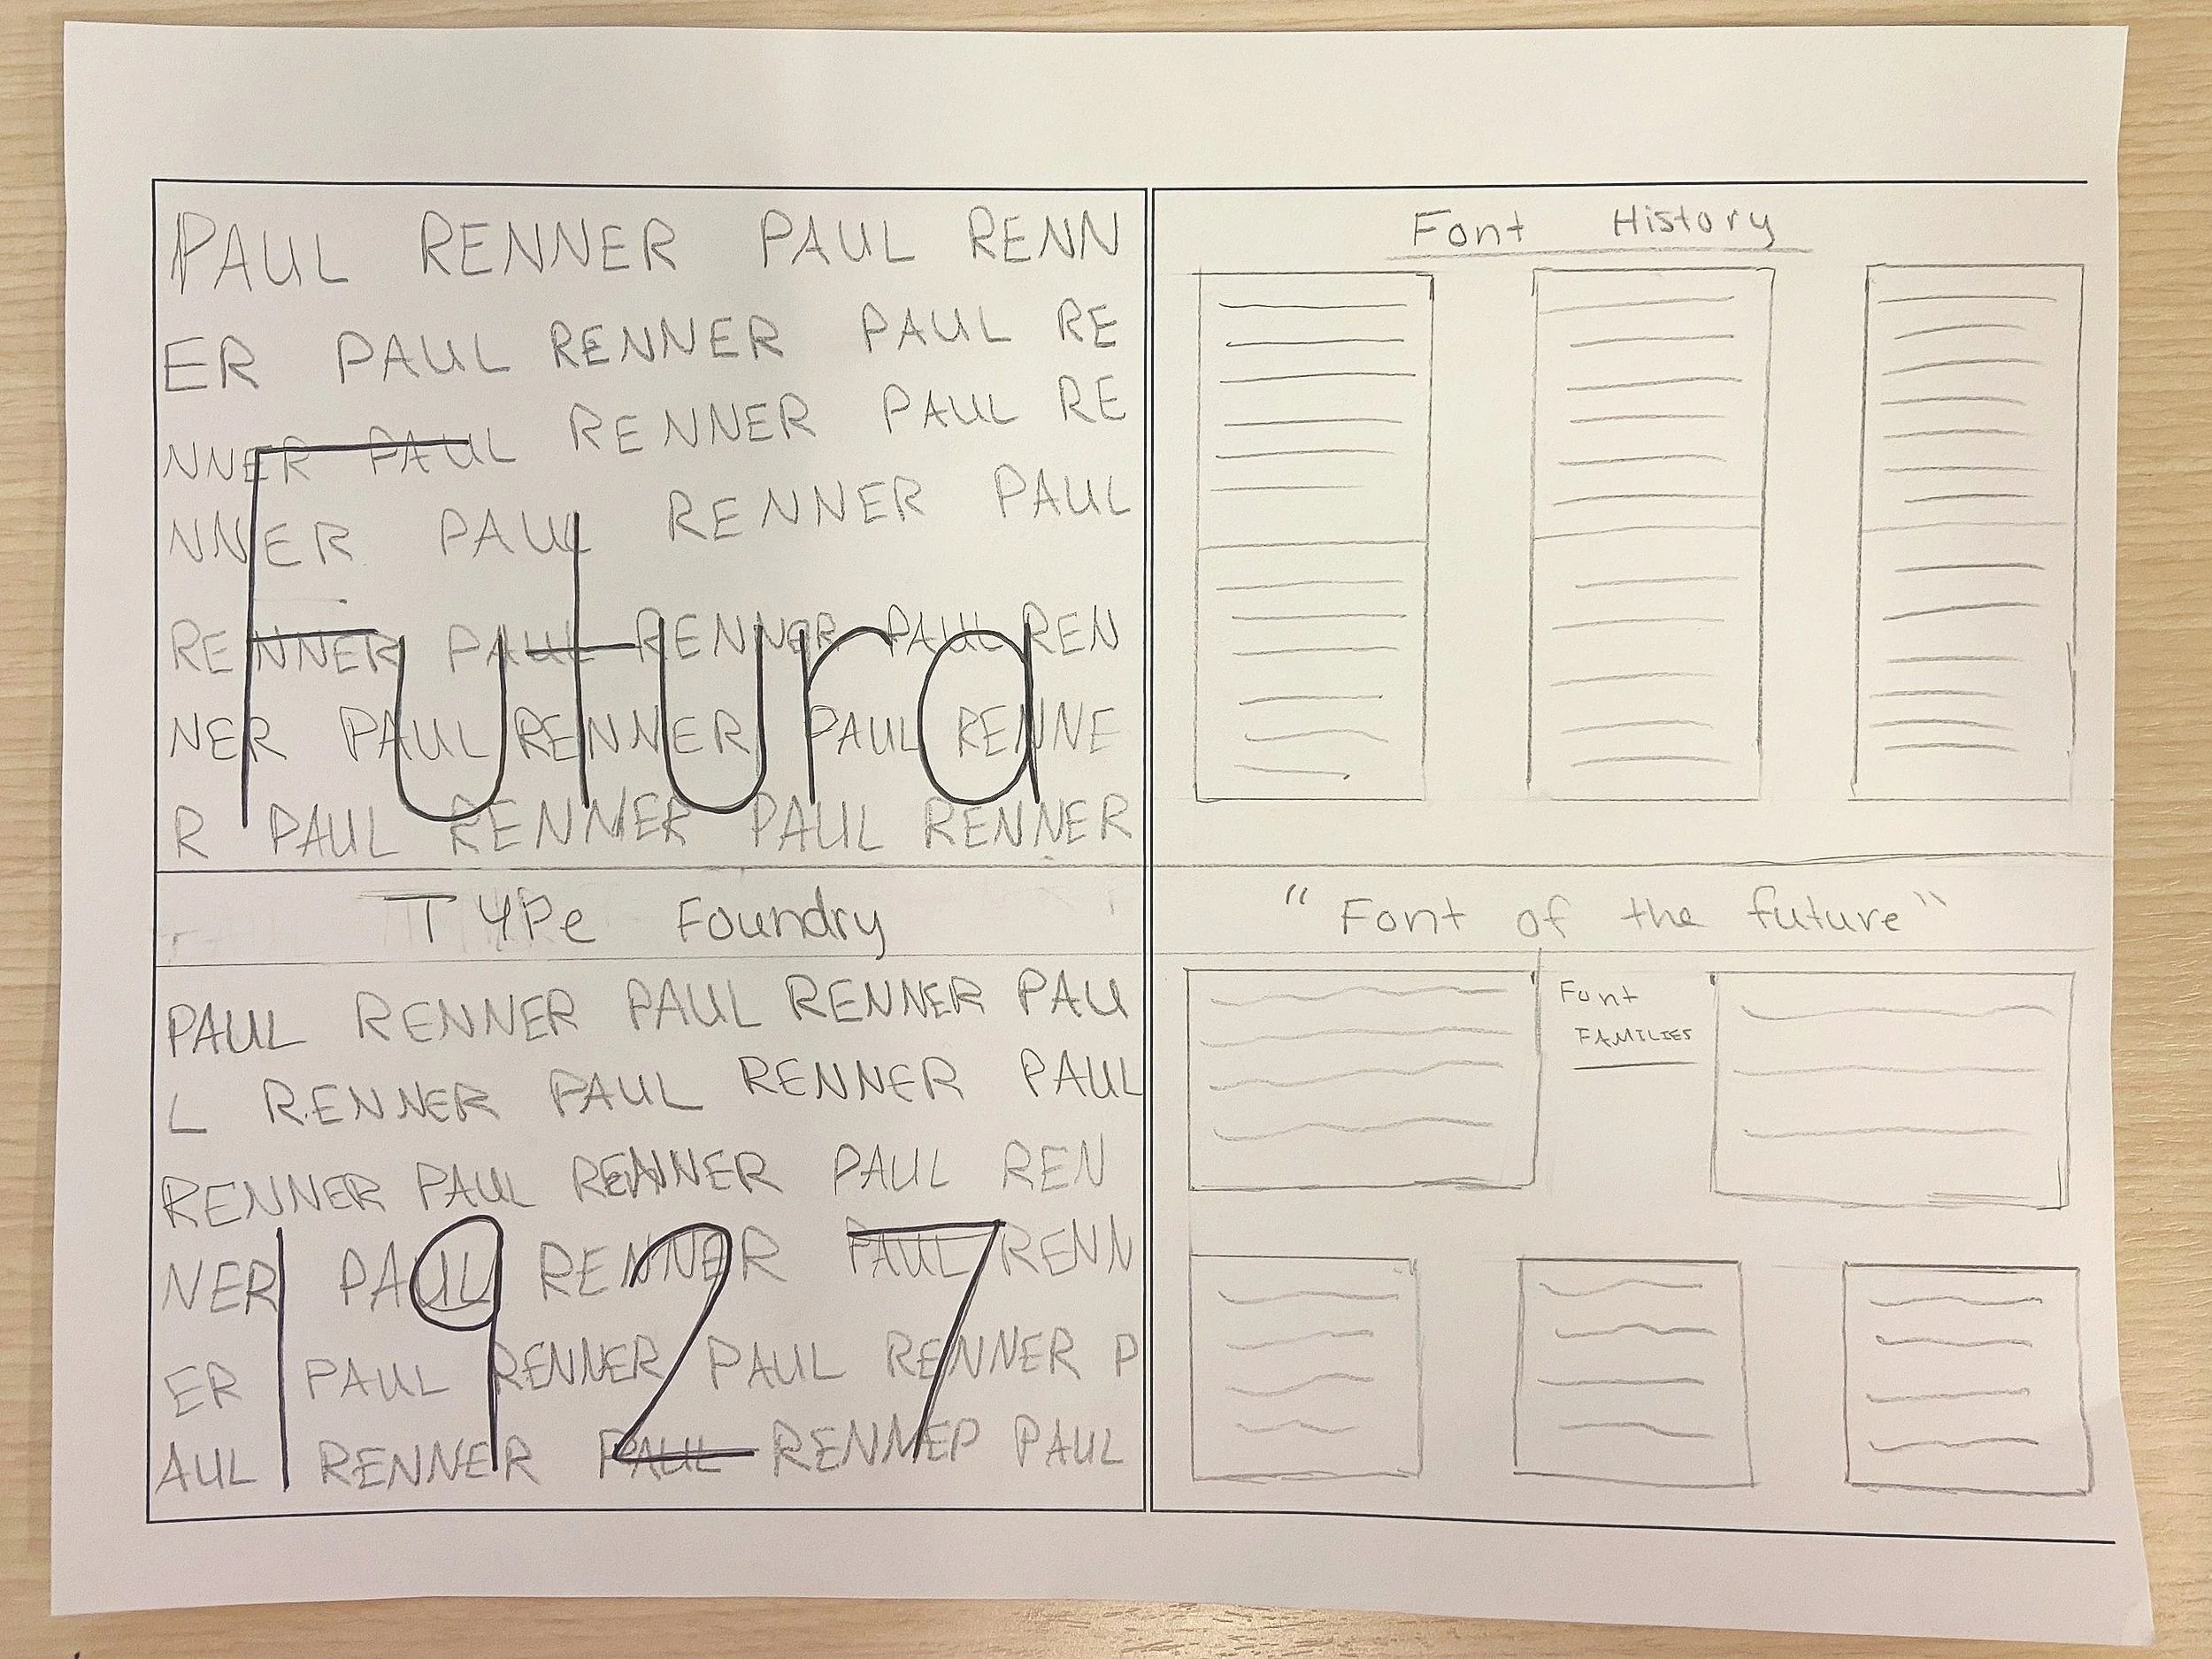 PAUL RENNER PAUL RENN
ER PAUL RENNER PAUL RE
NNER PAUL RENNER PAUL RE
NNER PAUL RENNER PAUL
RENNER PAUL RENNER PAUL REN
NER PAUL RENNER PAUL RENNE
R PAUL RENNER PAUL RENNER
Futura
TYPe Foundry
PAUL RENNER PAUL RENNER PAU
L RENNER PAUL RENNER PAUL
RENNER PAUL RENNER PAUL REN
NER PAUL RENNER PAUL RENN
ER PAUL RENNER PAUL RENNER P
AUL RENNER PAUL RENNER PAUL
1927
Font History
"Font of the future"
Font
FAMILIES